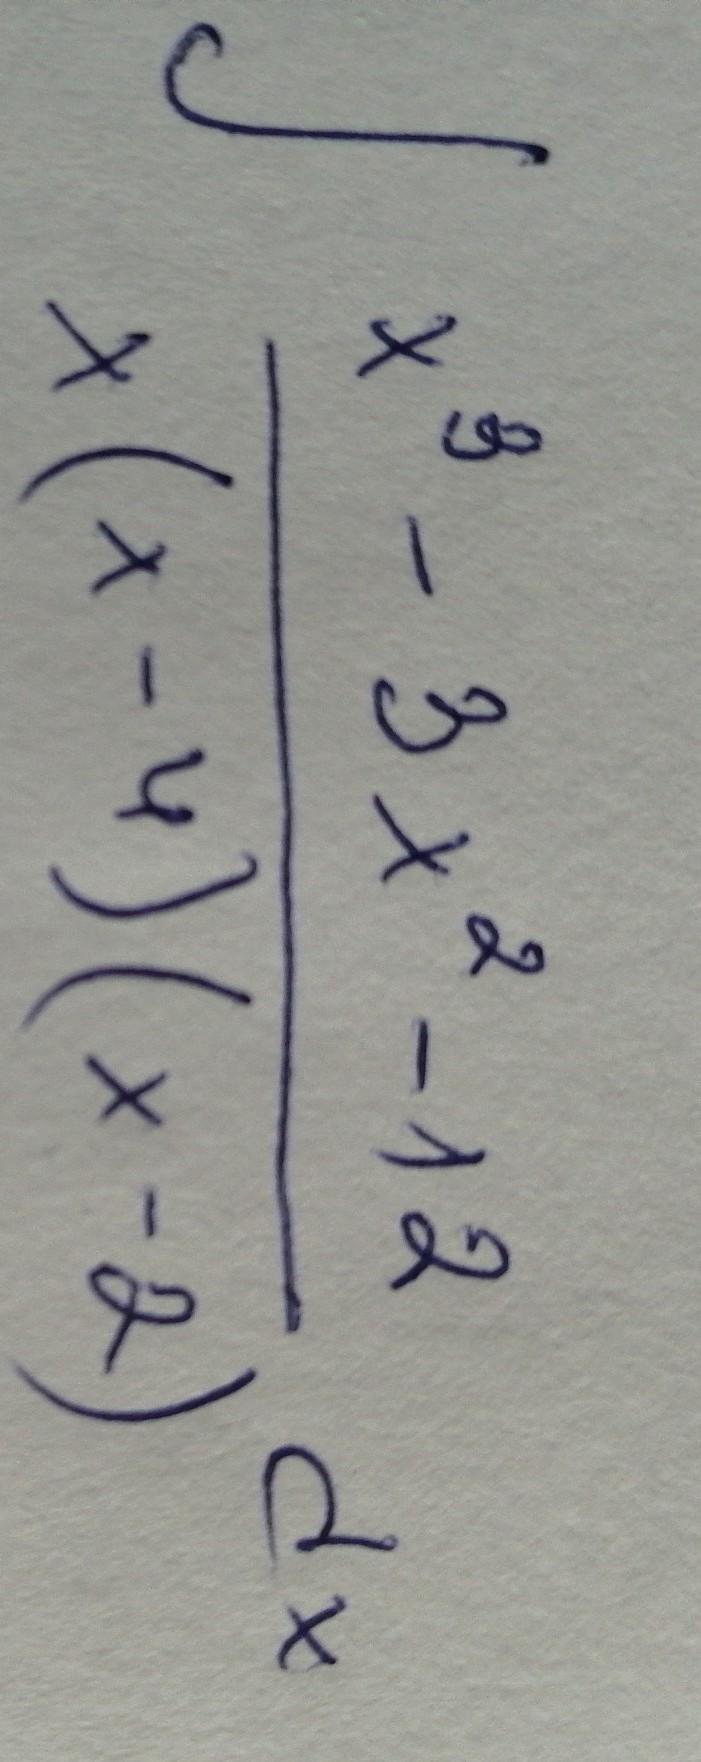 ∫ x³ - 3x² - 12
x(x - 4)(x - 2) dx